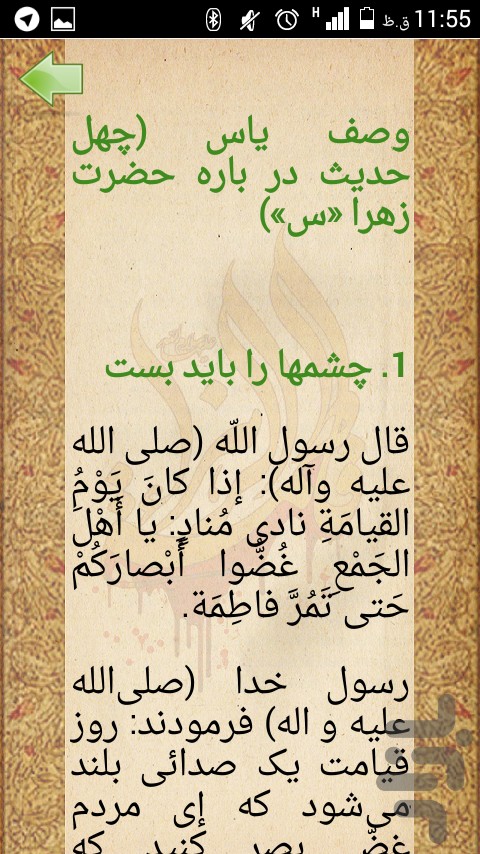 11:55 ق.ظ H
وصف یاس (چهل
حدیث در باره حضرت
زهرا «س»)
1. چشمها را باید بست
قال رسول اللّه (صلی الله
علیه وآله): إذا کانَ یَوْمُ
القیامَةِ نادی مُنادٍ: یا أَهْلَ
الجَمْعِ غُضُّوا أَبْصارَکُمْ
حَتی تَمُرَّ فاطِمَة.
رسول خدا (صلی‌الله
علیه و اله) فرمودند: روز
قیامت یک صدائی بلند
می‌شود که ای مردم
غضّ بصر کنید که